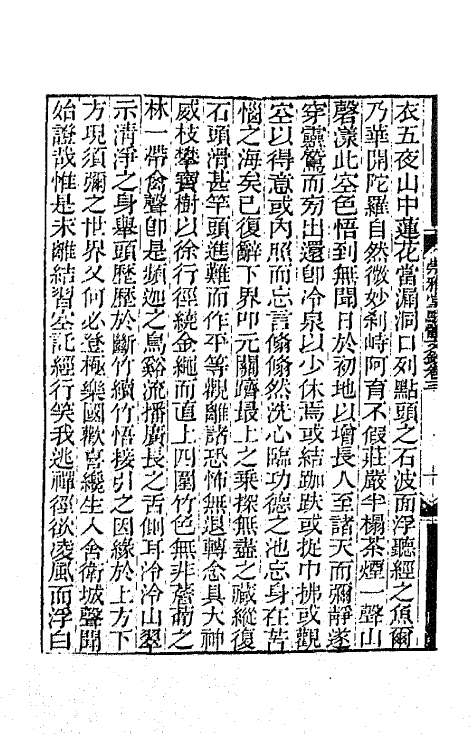 衣五夜山中蓮花當漏洞口列點頭之石波面浮聽經之魚爾
乃華開陀羅自然微妙刹峙阿育不假莊嚴半榻茶煙一聲山
磬漾此空色悟到無聞日於初地以增長人至諸天而彌靜遂
穿靈鷲而旁出還卽冷泉以少休焉或結跏趺或從中拂或觀
空以得意或內照而忘言翛翛然洗心臨功德之池忘身在苦
惱之海矣已復辭下界叩元關躋最上之乘探無盡之藏縱復
石頭滑甚竿頭進難而作平等觀離諸恐怖無退轉念具大神
威枝攀寶樹以徐行徑繞金繩而直上四圍竹色無非薝蔔之
林一帶禽聲卽是頻迦之鳥谿流播廣長之舌側耳泠泠山翠
示淸淨之身舉頭歷歷於斷竹續竹悟接引之因緣於上方下
方現須彌之世界又何必登極樂國歡喜纔生入舍衛城聲聞
始證哉惟是未離結習空託經行笑我逃禪徑欲凌風而浮白